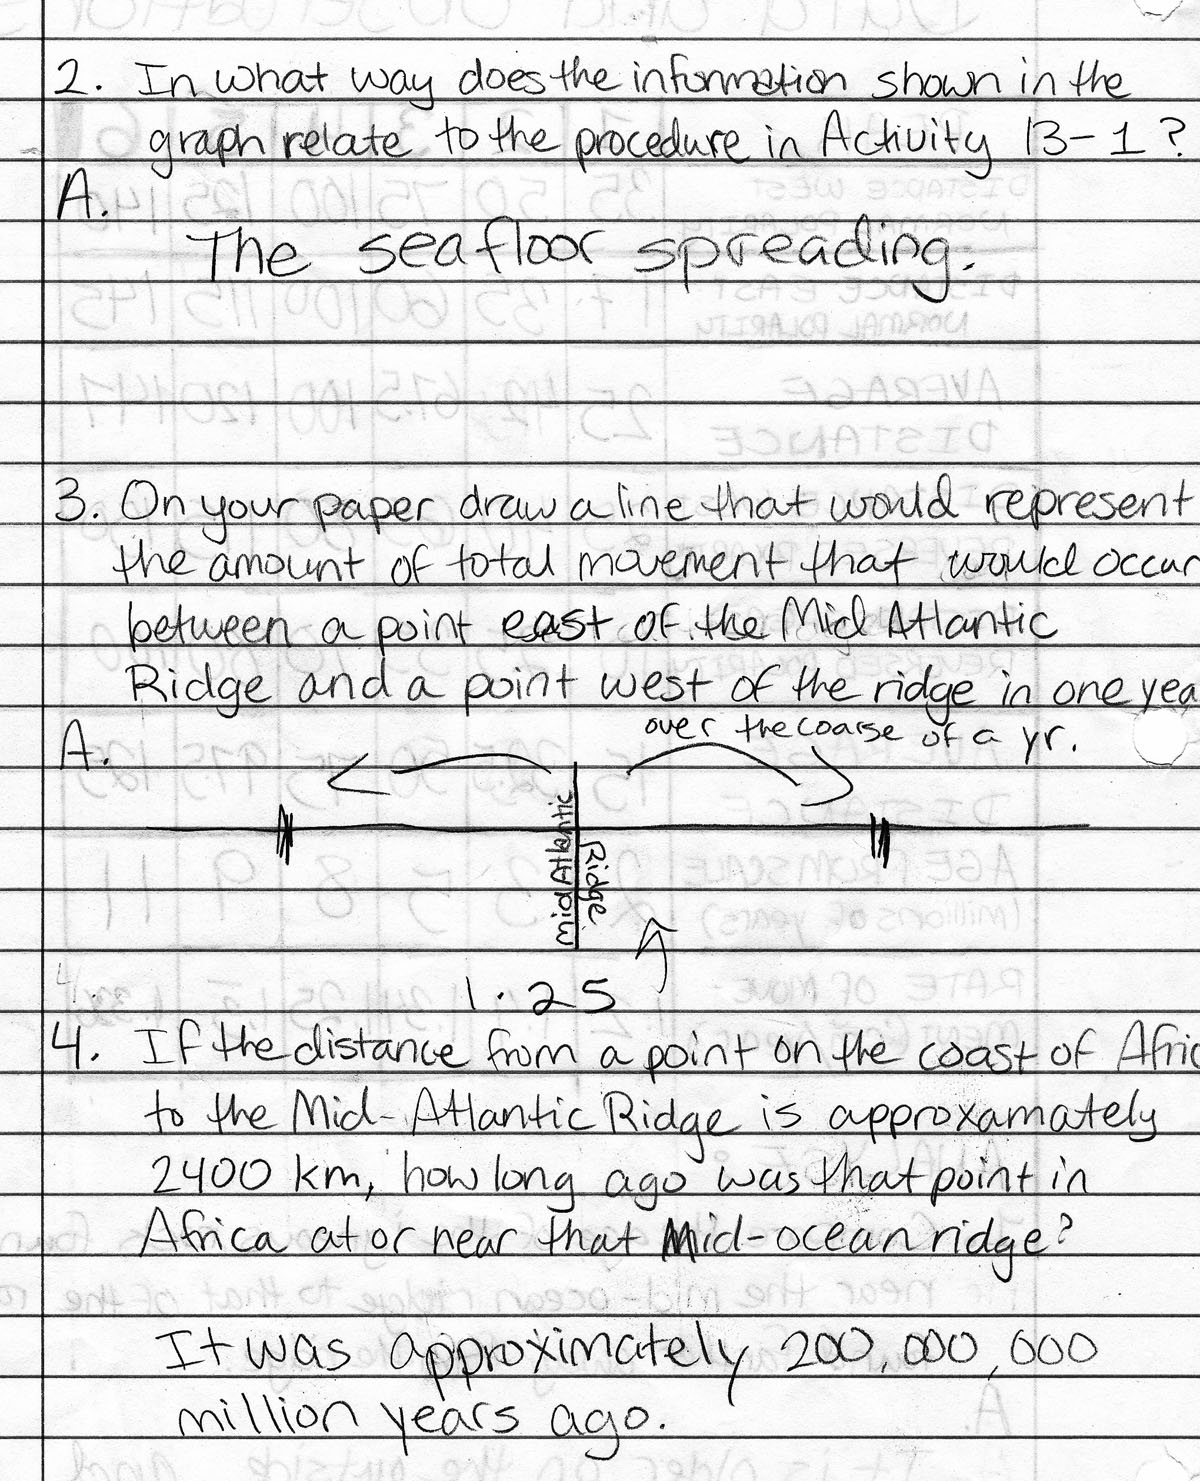 2. In what way does the information shown in the
graph relate to the procedure in Activity 13-1?
A.
The seafloor spreading.
3. On your paper draw a line that would represent
the amount of total movement that would occur
between a point east of the Mid Atlantic
Ridge and a point west of the ridge in one yea
A.
over the coarse of a yr.
mid Atlantic
Ridge
1.25
4. If the distance from a point on the coast of Afric
to the Mid-Atlantic Ridge is approxamately
2400 km, how long ago was that point in
Africa at or near that Mid-ocean ridge?
It was approximately 200,000,000
million years ago.